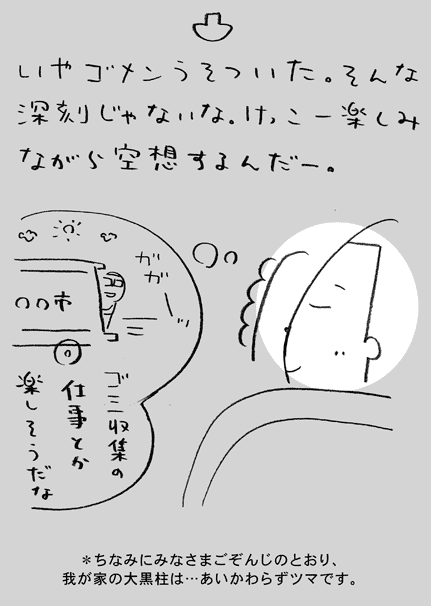 いやゴメンうそついた。そんな
深刻じゃないな。けっこー楽しみ
ながら空想するんだー。
ガガーッ
〇〇市
ゴミ収集の
仕事とか
楽しそうだな
＊ちなみにみなさまごぞんじのとおり、
我が家の大黒柱は…あいかわらずツマです。